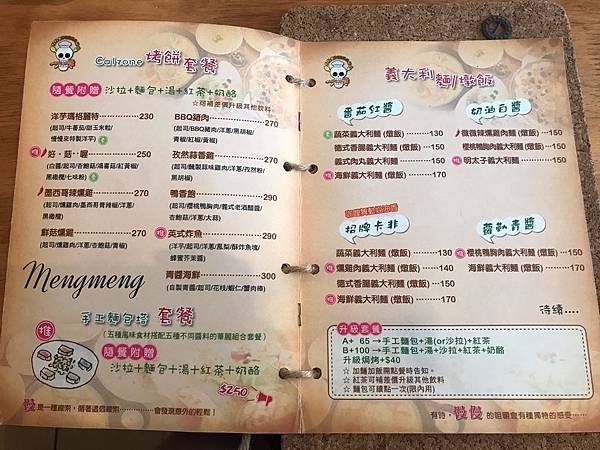 Calzone 烤餅套餐
隨餐附贈 沙拉+麵包+湯+紅茶+奶酪
☆可補差價升級其他飲料
洋芋瑪格麗特 230
(起司/牛蕃茄/甜玉米粒/
慢慢來特製洋芋)
推 好．菇．喔 250
(白醬/起司/杏鮑菇/鴻喜菇/紅黃椒/
黑橄欖/七味粉)
墨西哥辣燻雞 270
(起司/燻雞肉/墨西哥青辣椒/洋蔥/
黑橄欖)
鮮菇燻雞 270
(起司/燻雞肉/洋蔥/杏鮑菇/青椒)
BBQ豬肉 270
(起司/BBQ豬肉/洋蔥/黑胡椒/
青椒/紅椒/黃椒)
孜然蒜香雞 270
(起司/醃製蒜味雞肉/洋蔥/孜然粉/
黑胡椒)
鴨香飽 290
(起司/櫻桃鴨胸肉/義式老酒醋醬/
杏鮑菇/洋蔥/大蒜)
推 英式炸魚 290
(洋芋/起司/洋蔥/鳳梨/酥炸魚塊/
蜂蜜芥茉醬)
青醬海鮮 300
(自製青醬/起司/花枝/蝦仁/蟹肉棒)
Mengmeng
手工麵包塔 套餐
推 (五種風味食材搭配五種不同醬料的華麗組合套餐)
隨餐附贈
沙拉+麵包+湯+紅茶+奶酪
$250
慢是一種線索，循著這個線索……會發現意外的輕鬆！
義大利麵/燉飯
番茄紅醬
蔬菜義大利麵 (燉飯) 130
德式香腸義大利麵 (燉飯) 150
義式肉丸義大利麵 150
推 海鮮義大利麵 (燉飯) 170
奶油白醬
微微辣燻雞肉麵 (燉飯) 150
櫻桃鴨胸肉義大利麵 (燉飯) 150
推 明太子義大利麵 (燉飯) 170
招牌卡非
蔬菜義大利麵 (燉飯) 130
推 燻雞肉義大利麵 (燉飯) 140
德式香腸義大利麵 (燉飯) 150
推 海鮮義大利麵 (燉飯) 170
青醬
推 櫻桃鴨胸肉義大利麵 (燉飯) 150
海鮮義大利麵 (燉飯) 170
待續....
升級套餐
A+ 65→手工麵包+湯(or沙拉)+紅茶
B+100→手工麵包+湯+沙拉+紅茶+奶酪
升級焗烤+$40
☆ 加麵加飯需點餐時告知。
☆ 紅茶可補差價升級其他飲料
☆ 麵包可續點一次(限內用)
有時，慢慢的咀嚼會有種獨特的感受……